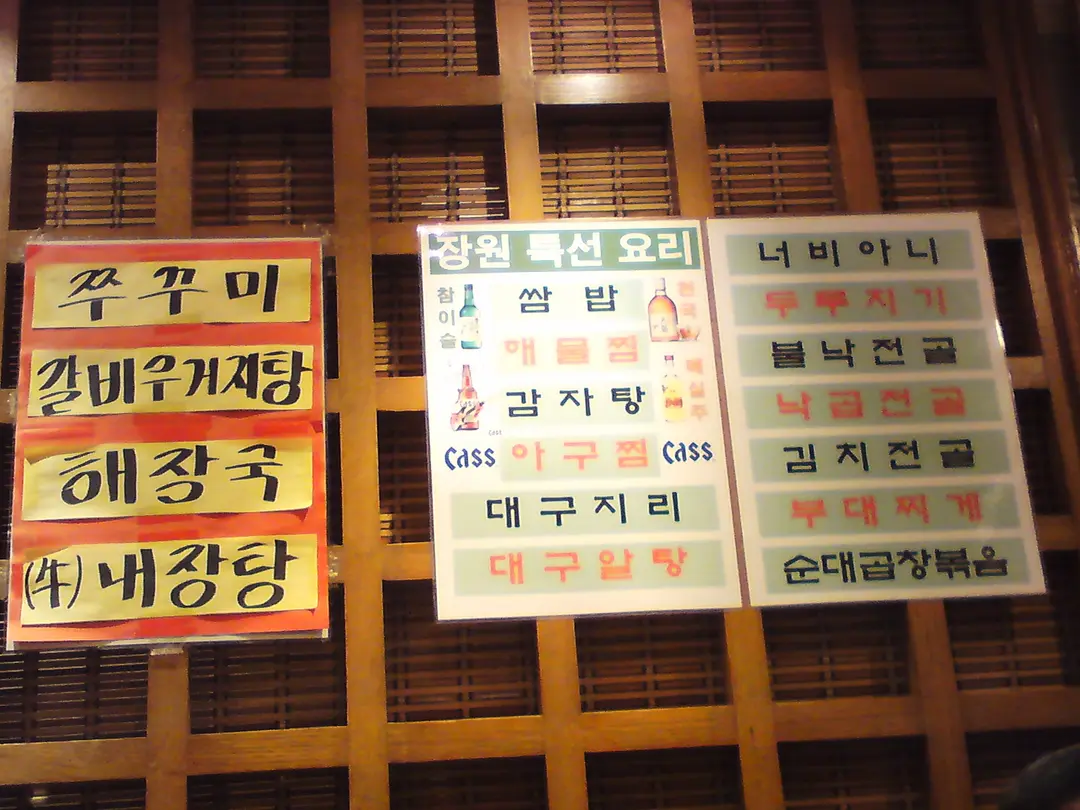 쭈꾸미
갈비우거지탕
해장국
(牛)내장탕
장원 특선 요리
참이슬
쌈 밥
해 물 찜
감 자 탕
매실주
Cass
아 구 찜
Cass
대 구 지 리
대 구 알 탕
너 비 아 니
두 루 치 기
불 낙 전 골
낙 곱 전 골
김 치 전 골
부 대 찌 게
순대곱창볶음